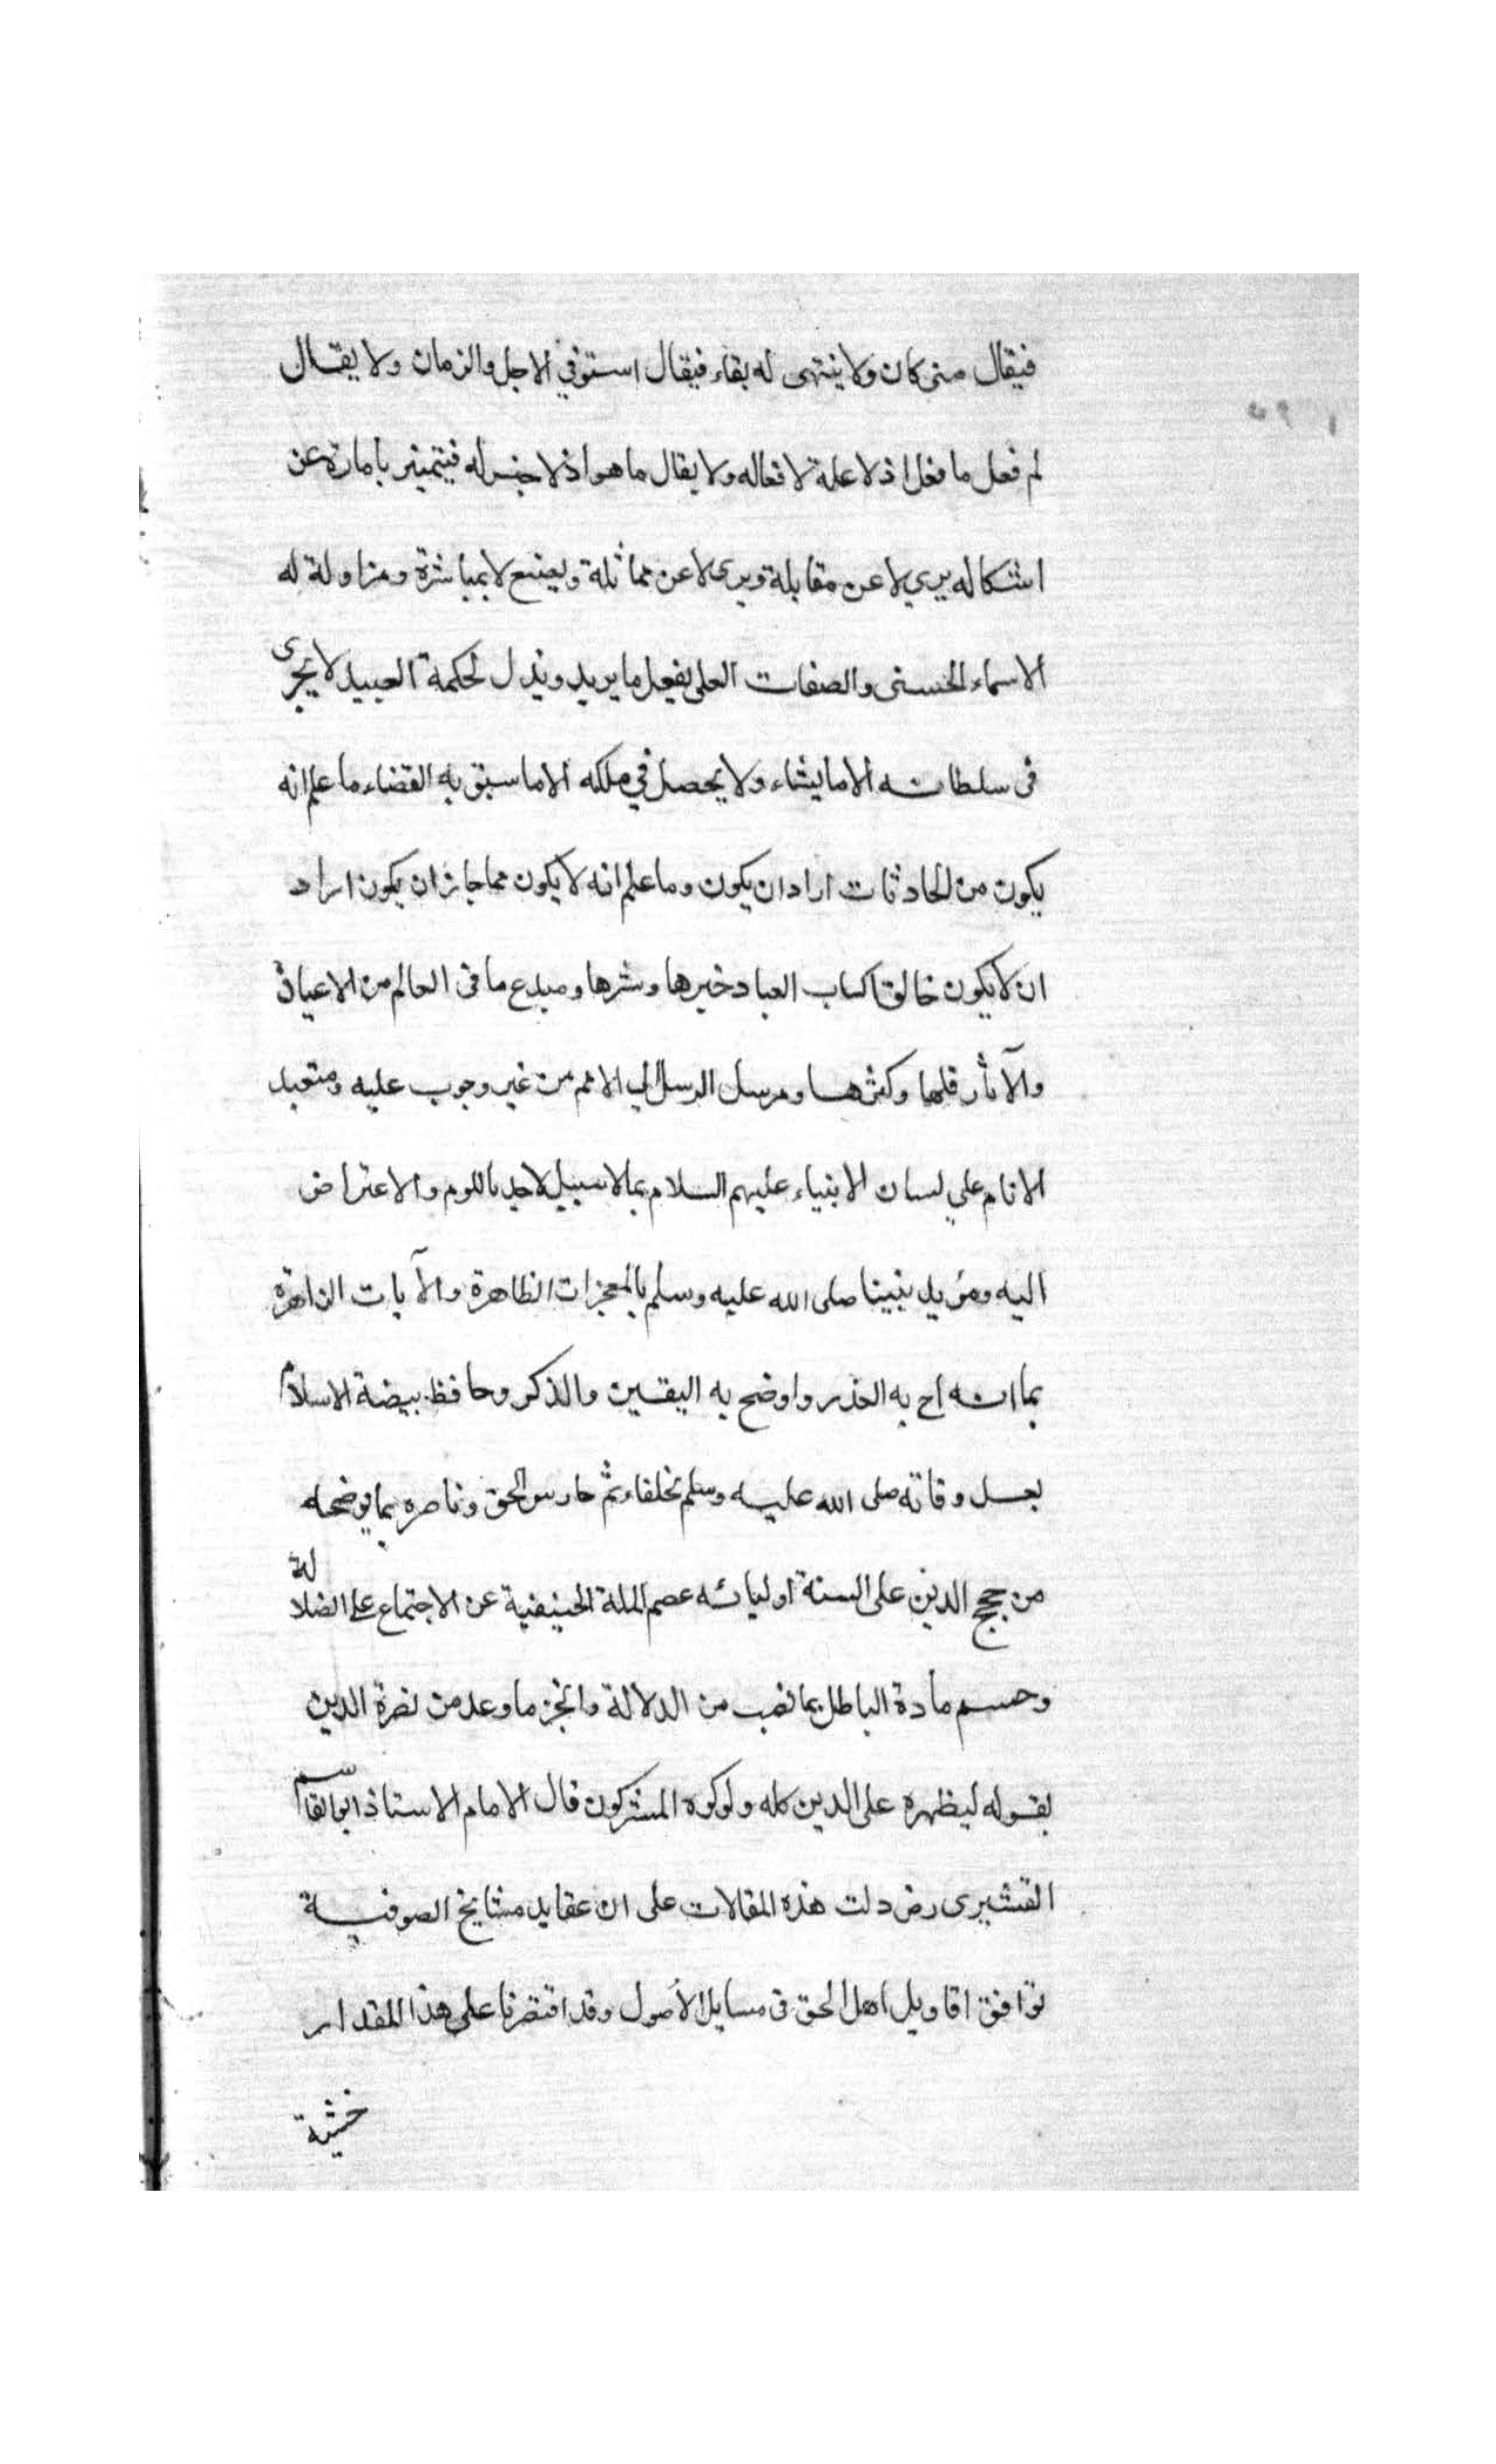 فيقال متى كان ولا ينتهى له بقاء فيقال استوفي الاجل والزمان ولا يقال
لم فعل ما فعل اذ لا علة لافعاله ولا يقال ما هو اذ لا جنس له فيتميز بامارة عن
اشكاله يري لا عن مقابلة ويرى لا عن مماثلة ويصنع لا بمباشرة ومزاولة له
الاسماء الحسنى والصفات العلى يفعل ما يريد ويذل لحكمة العبيد لا يجرى
فى سلطانه الا ما يشاء ولا يحصل في ملكه الا ما سبق به القضاء ما علم انه
يكون من الحادثات اراد ان يكون وما علم انه لا يكون مما جاز ان يكون اراد
ان لا يكون خالق اكساب العباد خيرها وشرها ومبدع ما فى العالم من الاعيان
والآثار قلها وكثرها ومرسل الرسل الي الامم من غير وجوب عليه ومتعبد
الانام علي لسان الانبياء عليهم السلام بما لا سبيل لاحد باللوم والاعتراض
اليه ومؤيد نبينا صلى الله عليه وسلم بالمعجزات الظاهرة والآيات الزاهرة
بما انه اح به العذر واوضح به اليقين والذكر وحافظ بيضة الاسلام
بعد وفاته صلى الله عليه وسلم بخلفاء ثم حارس الحق وناصره بما يوضحه
من حجج الدين على السنة اوليائه عصم الملة الحنيفية عن الاجتماع على الضلالة
وحسم مادة الباطل بما نصب من الدلالة وانجز ما وعد من نصرة الدين
بقوله ليظهره على الدين كله ولو كره المشركون قال الامام الاستاذ ابو القاسم
القشيرى رض دلت هذه المقالات على ان عقايد مشايخ الصوفية
توافق اقاويل اهل الحق فى مسايل الأصول وقد اقتصرنا على هذا المقدار
خشية